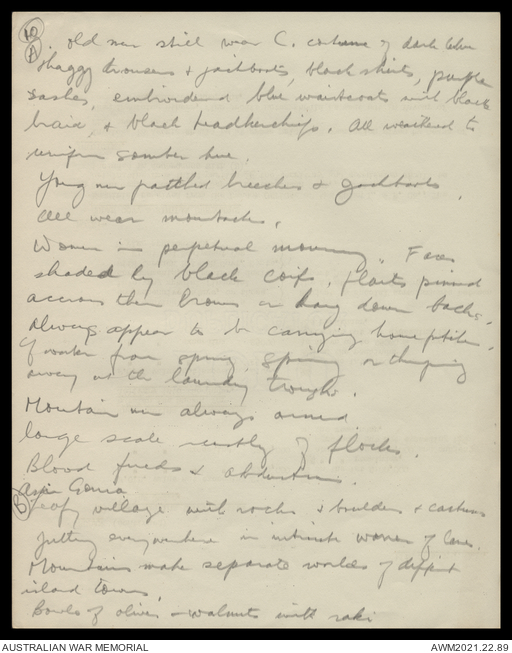 10
A
Old men still wear C. costume of dark blue
shaggy trousers & jackboots, black shirts, purple
sashes, embroidered blue waistcoats with black
braid, & black headkerchiefs. All weathered to
uniform somber hue.
Young men puttled breeches & jackboots.
All wear moustachs.
Women in perpetual mourning. Faces
shaded by black coifs, plaits pinned
accross their brows or hang down backs.
Always appear to be carrying
of water from spring, spinning or thumping
away at the laundry troughs.
Mountain men always armed
large scale rustling of flocks.
Blood fueds & abductions.
B
Leafy village with rocks & boulders & cactus
jutting everywhere in intricate warren of lanes.
Mountains make separate worlds of differint
inland towns.
Bowls of olives & walnuts with raki
AUSTRALIAN WAR MEMORIAL
AWM2021.22.89